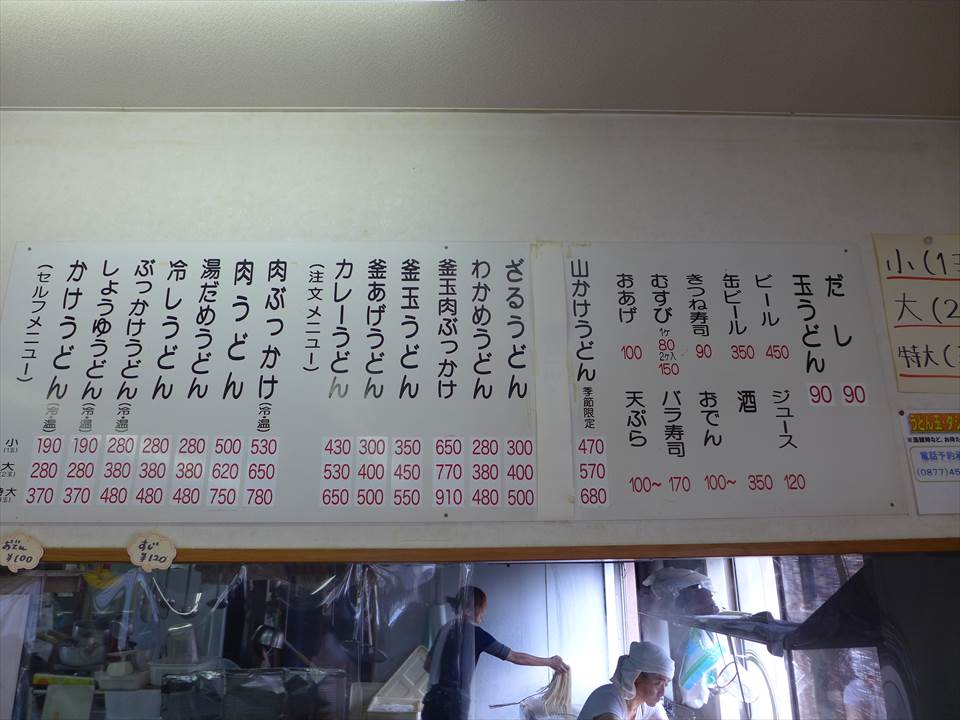 (セルフメニュー)
小(1玉)
大(2玉)
かけうどん(冷・温) 190 280 370
しょうゆうどん(冷・温) 190 280 370
ぶっかけうどん(冷・温) 280 380 480
冷しうどん 280 380 480
湯だめうどん 280 380 480
肉うどん 500 620 750
肉ぶっかけ(冷・温) 530 650 780
(注文メニュー)
カレーうどん 430 530 650
釜あげうどん 300 400 500
釜玉うどん 350 450 550
釜玉肉ぶっかけ 650 770 910
わかめうどん 280 380 480
ざるうどん 300 400 500
山かけうどん 季節限定 470 570 680
おあげ 100
むすび 1ケ 80 2ケ入 150
きつね寿司 90
缶ビール 350
ビール 450
玉うどん 90
だし 90
天ぷら 100~
バラ寿司 170
おでん 100~
酒 350
ジュース 120
小(1
大(2
特大(
うどん玉・タ
電話予約
(0877)45
おでん
¥100
すじ
¥120